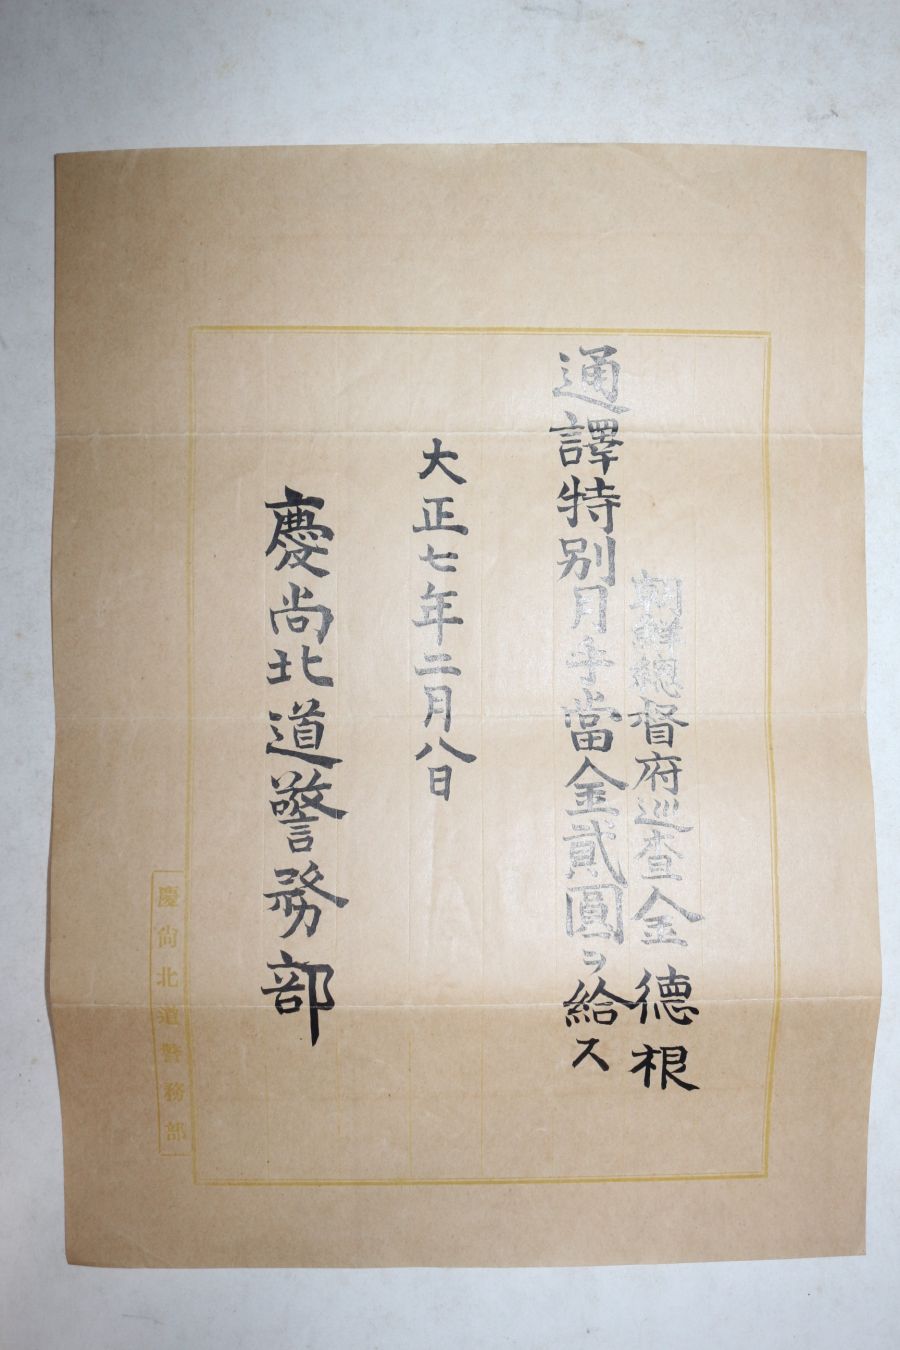 朝鮮總督府巡査金德根
通譯特別月手當金貳圓ヲ給ス
大正七年二月八日
慶尚北道警務部
慶尚北道警務部